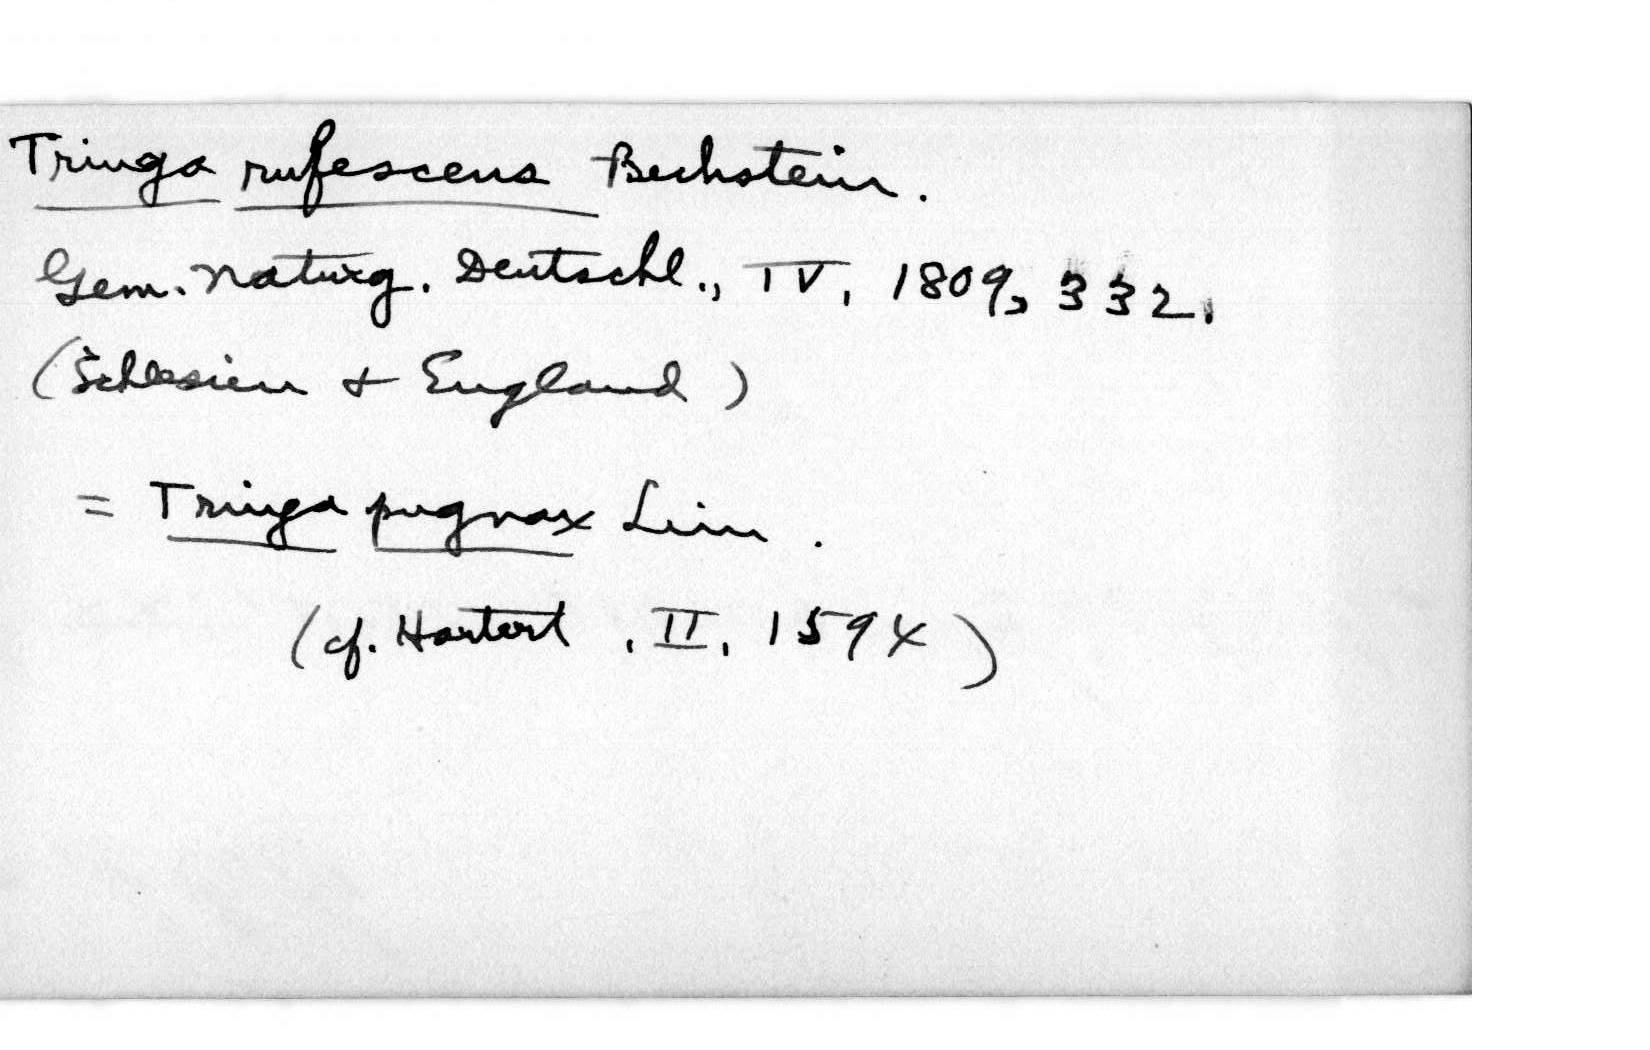 Tringa rufescens Bechstein.
Gem. Naturg. Deutschl., IV, 1809, 332.
(Schlesien + England)
= Tringa pugnax Linn.
(cf. Hartert, II, 1594)